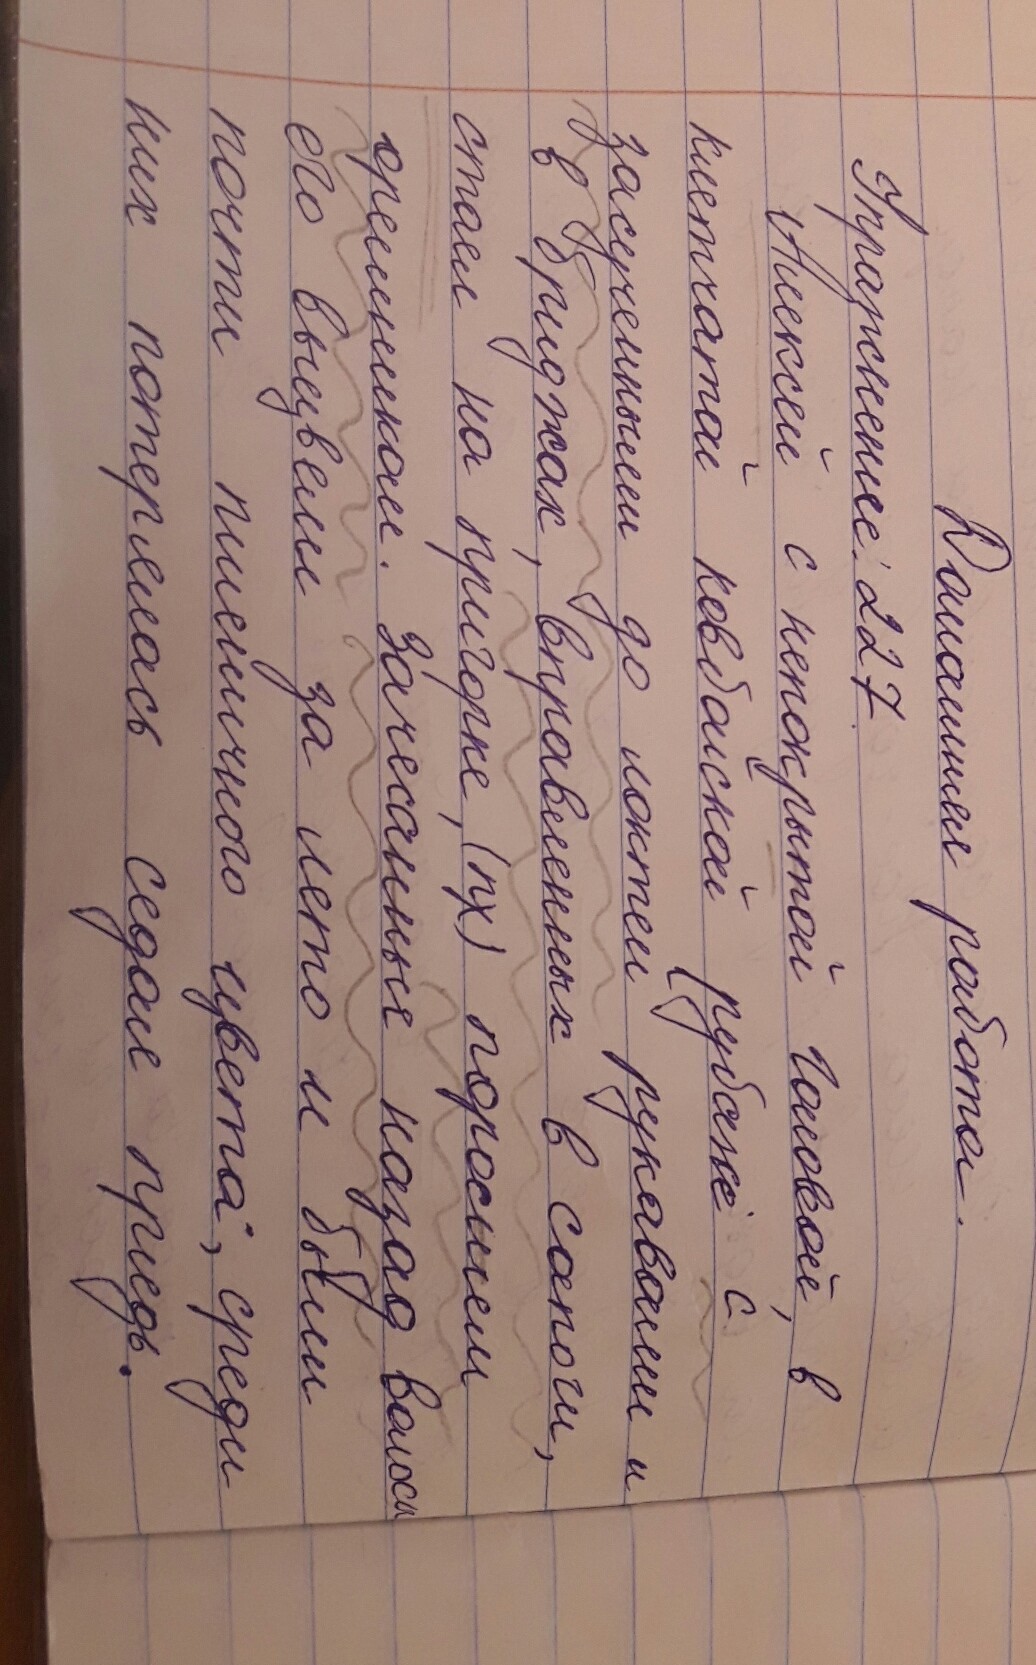 Домашняя работа.
Упражнение 227.
Алексей с непокрытой головой, в
клетчатой ковбойской рубахе с
засученными до локтей рукавами и
в бриджах, вправленных в сапоги,
стоял на пригорке, (пх) поросшем
орешником. Зачёсанные назад волосы
его выцвели за лето и были
почти пшеничного цвета, среди
них потерялась седая прядь.